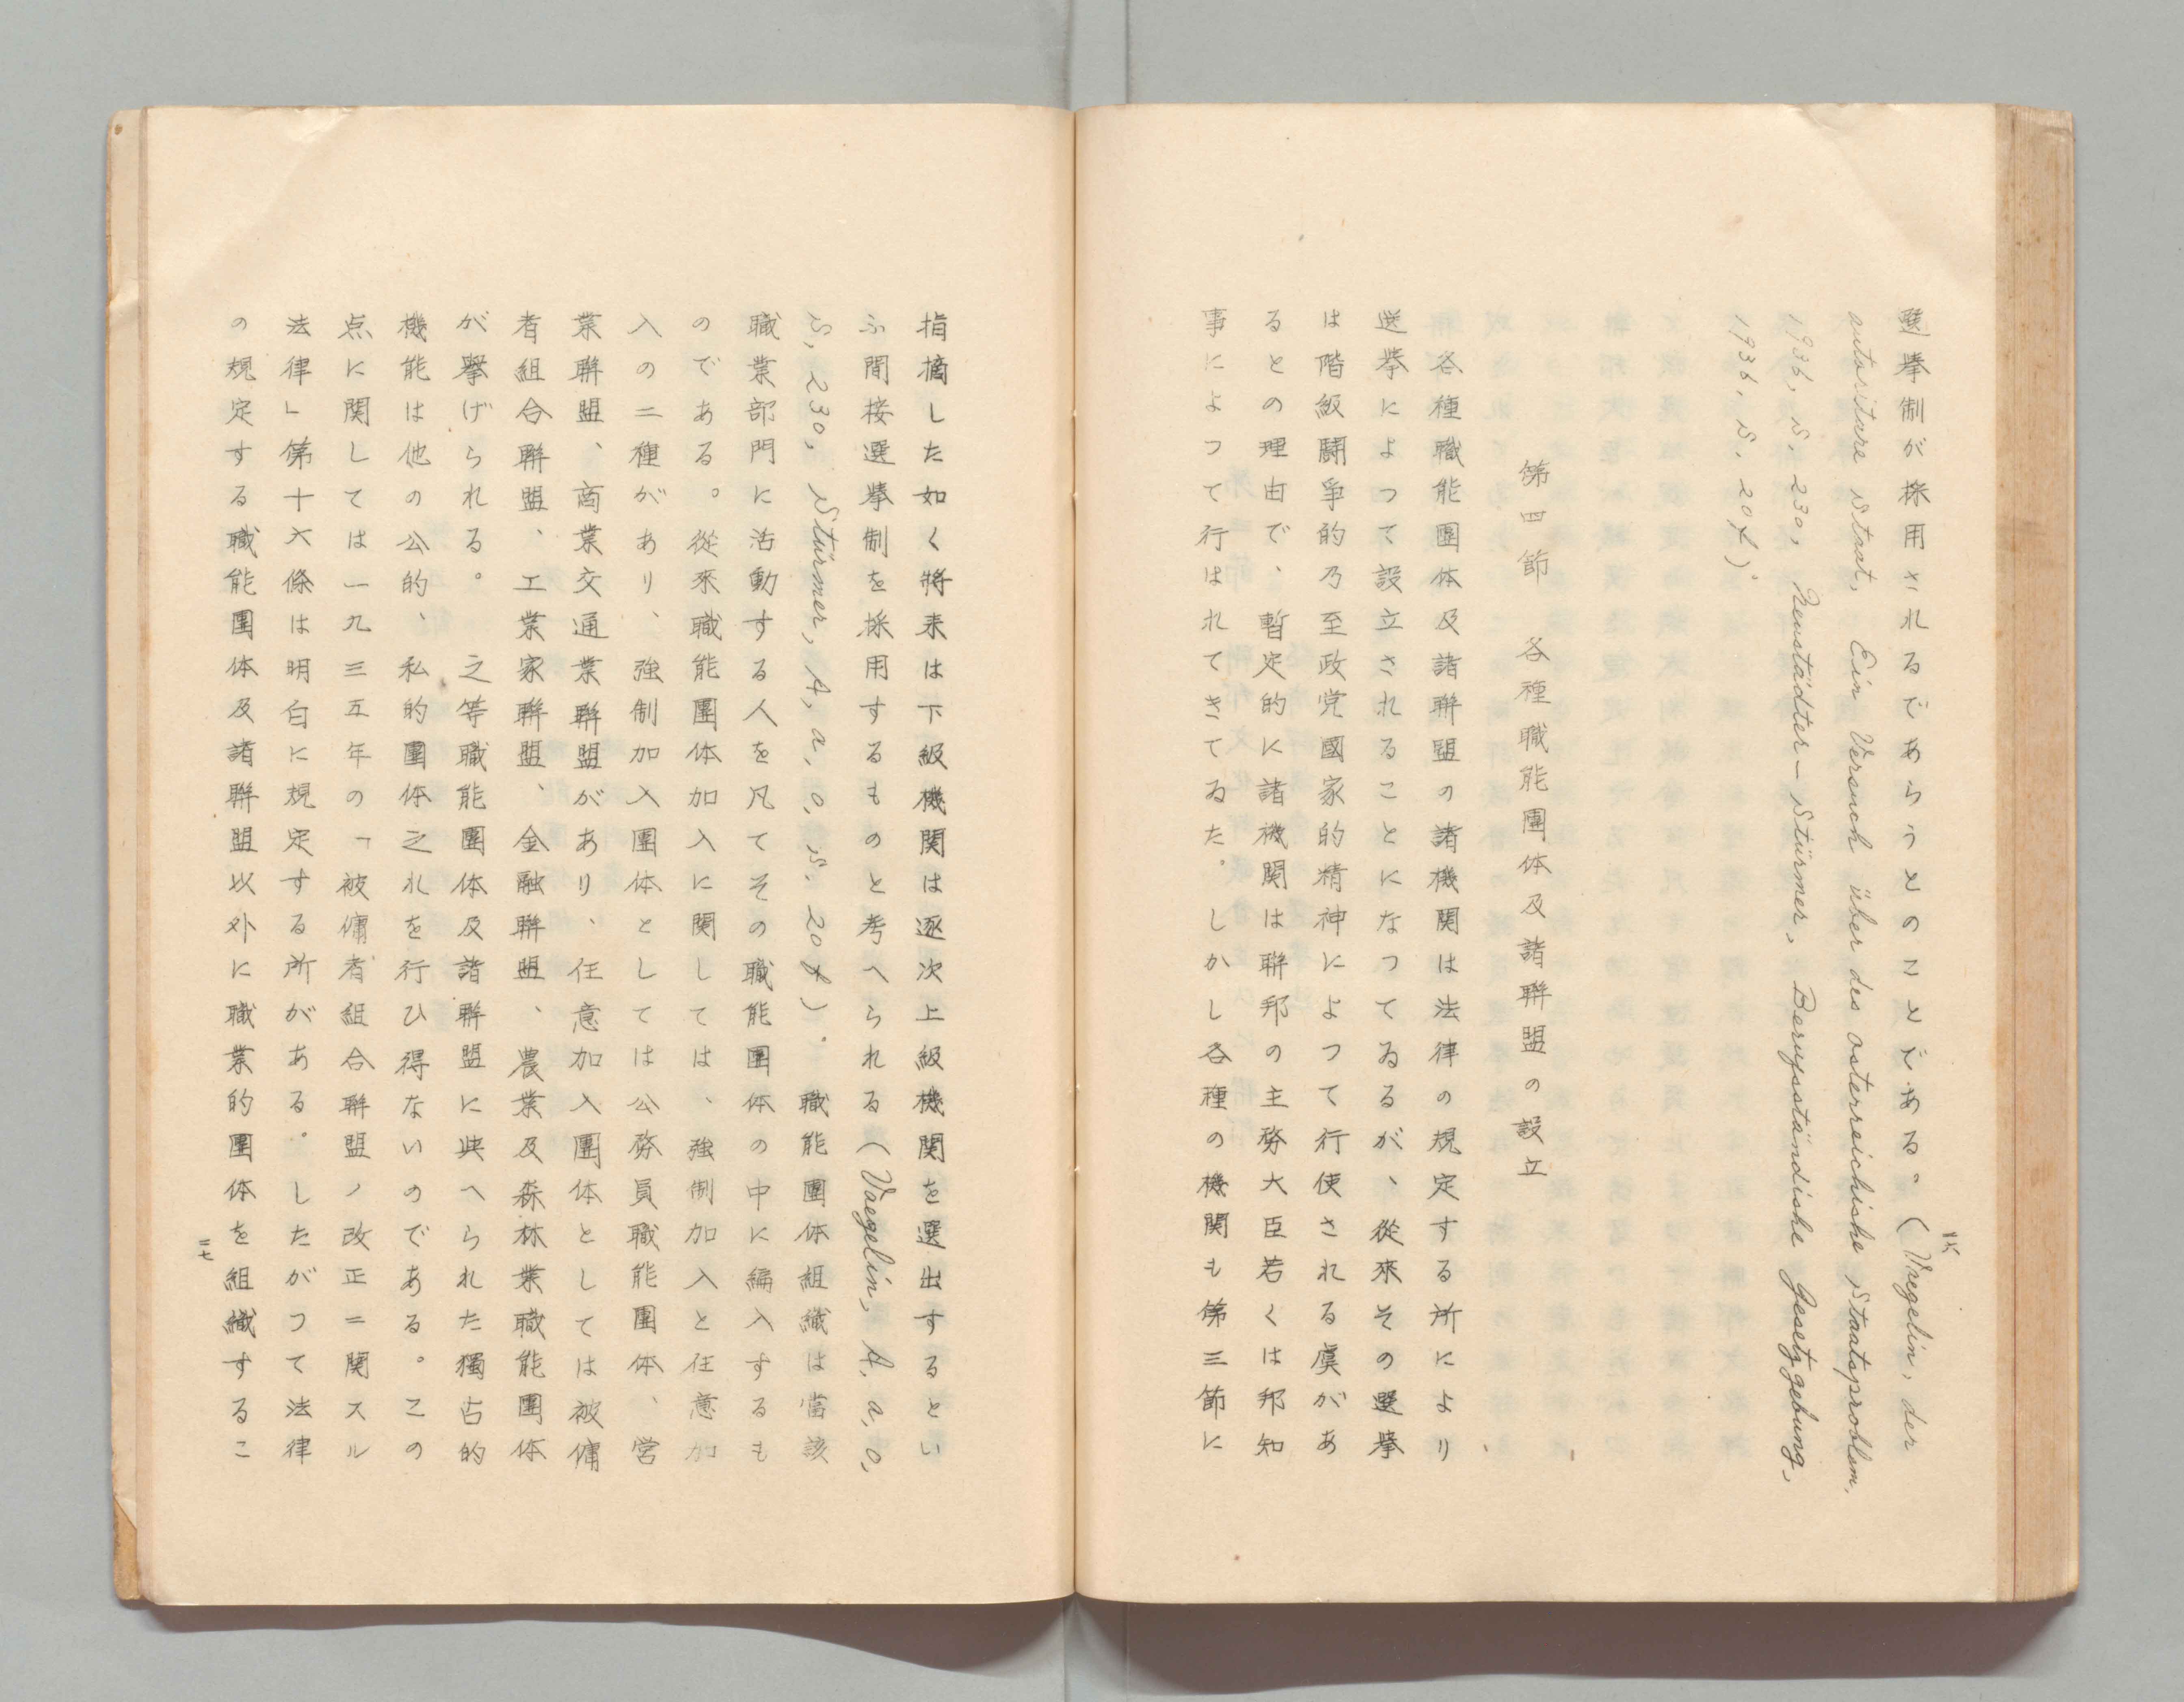 選挙制が採用されるであらうとのことである。(Vaegelin, der
autoritäre Staat, Ein Versuch über des österreichishe Staatsproblem,
1936, S, 230, Neustädter-Stürmer, Berufsständishe Gesetzgebung,
1936, S, 20f)
第四節 各種職能團体及諸聯盟の設立
各種職能團体及諸聯盟の諸機関は法律の規定する所により
選挙によつて設立されることになつてゐるが、從來その選挙
は階級鬪爭的乃至政党國家的精神によつて行使される虞があ
るとの理由で、暫定的に諸機関は聯邦の主務大臣若くは邦知
事によつて行はれてきてゐた。しかし各種の機関も第三節に
二六
指摘した如く將来は下級機関は逐次上級機関を選出するとい
ふ間接選挙制を採用するものと考へられる(Vaegelin, A, a, O,
S, 230, Stürmer, A, a, O, S. 20f)。職能團体組織は當該
職業部門に活動する人を凡てその職能團体の中に編入するも
のである。從來職能團体加入に関しては、強制加入と任意加
入の二種があり、強制加入團体としては公務員職能團体、営
業聯盟、商業交通業聯盟があり、任意加入團体としては被傭
者組合聯盟、工業家聯盟、金融聯盟、農業及森林業職能團体
が擧げられる。之等職能團体及諸聯盟に與へられた獨占的
機能は他の公的、私的團体之れを行ひ得ないのである。この
点に関しては一九三五年の「被傭者組合聯盟ノ改正ニ関スル
法律」第十六條は明白に規定する所がある。したがつて法律
の規定する職能團体及諸聯盟以外に職業的團体を組織するこ
二七